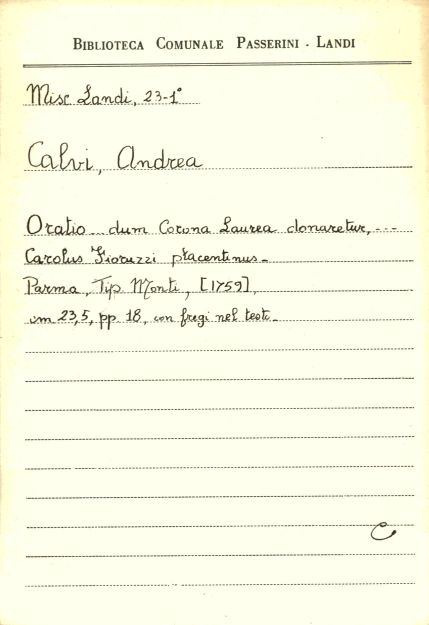 BIBLIOTECA COMUNALE PASSERINI - LANDI
Misc Landi, 23-1°
Calvi, Andrea
Oratio dum Corona Laurea donaretur, ---
Carolus Fioruzzi placentinus_
Parma, Tip Monti, [1759],
cm 23,5, pp 18, con fregi nel testo_
C